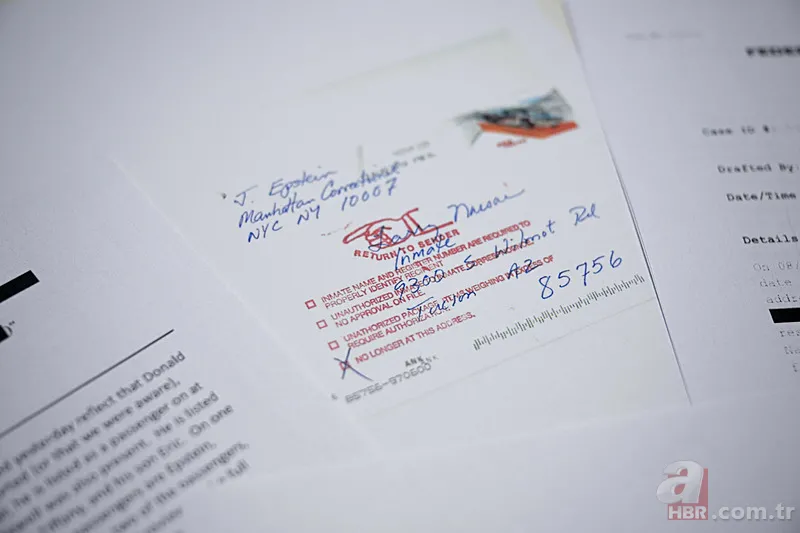 J. Epstein
Manhattan Correctional
NYC NY 10007
Larry Nassar
Inmate
9300 S Wilmot Rd
Tucson AZ
85756
RETURN TO SENDER
INMATE NAME AND REGISTER NUMBER ARE REQUIRED TO
PROPERLY IDENTIFY RECIPIENT
UNAUTHORIZED INMATE TO INMATE CORRESPONDENCE
NO APPROVAL ON FILE.
UNATHORIZED PACKAGE. ITEMS WEIGHING IN EXCESS OF
REQUIRE AUTHORIZATION
X NO LONGER AT THIS ADDRESS.
ANK
85756-970600
yesterday reflect that Donald
(or that we were aware),
he is listed as a passenger on at
was also present. He is listed
Tiffany, and his son Eric. On one
passengers are Epstein,
of the passengers,
full
Case ID #:
Drafted By:
Date/Time
Details
On 08/
date
addr
Na
f
a
HBR.com.tr